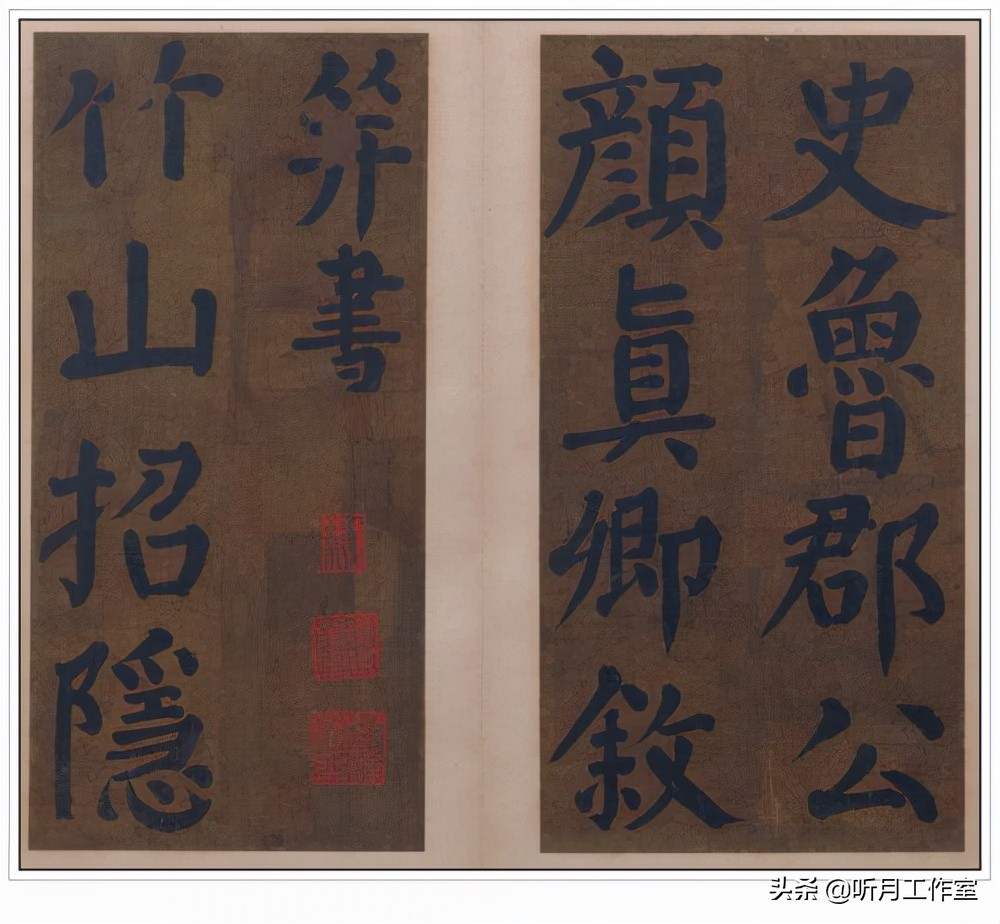 史魯郡公
顔眞卿敍
幷書
竹山招隱
头条 @听月工作室